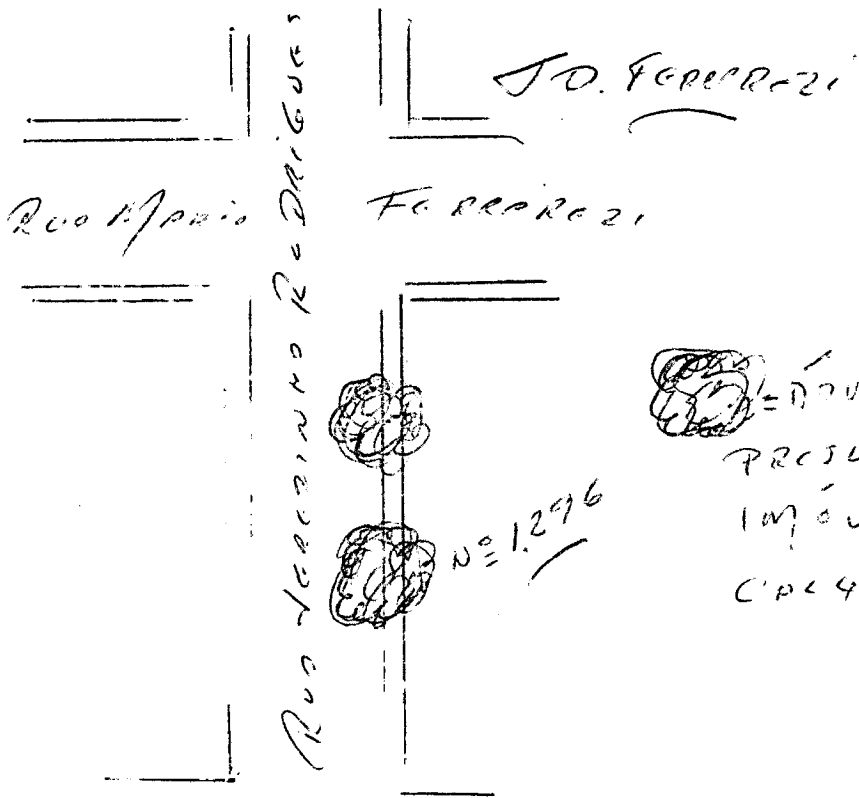 JD. FERRAREZI
RUA MARIO FERRAREZI
RUA VEREDINHO RODRIGUES
Nº 1.296
= ÁRV
IMÓV